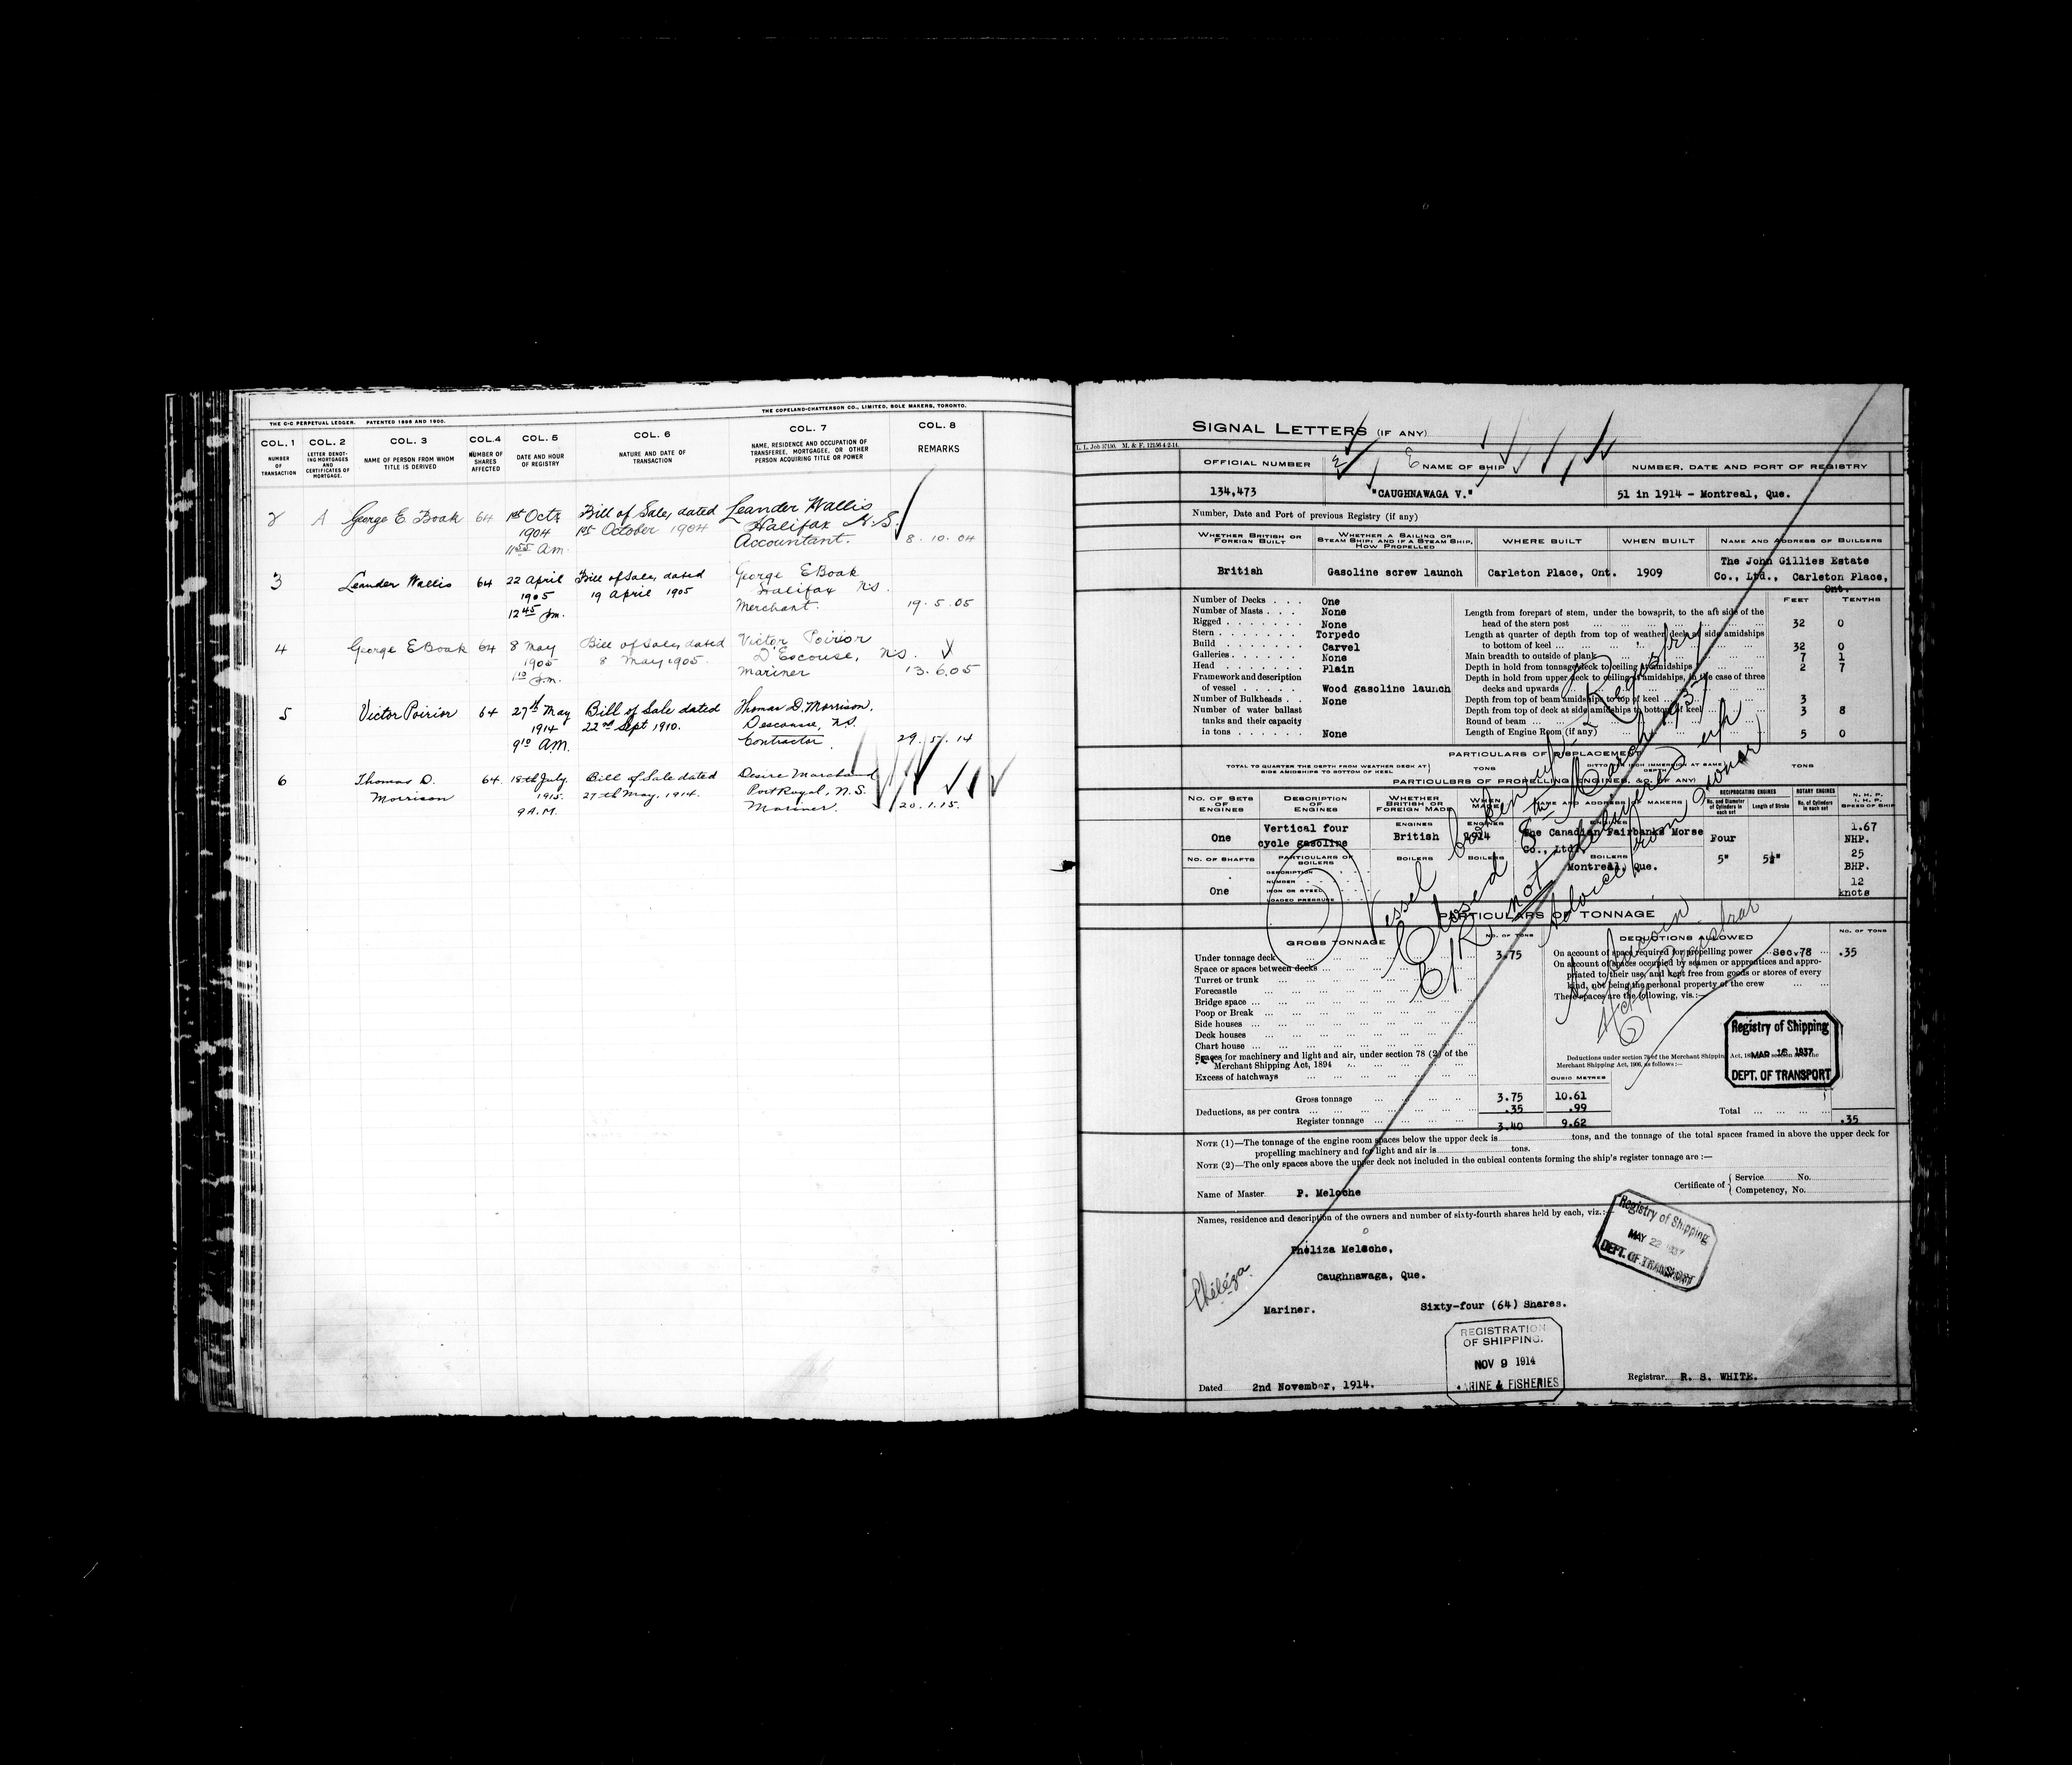 THE C-C PERPETUAL LEDGER. PATENTED 1896 AND 1900. THE COPELAND-CHATTERSON CO., LIMITED, SOLE MAKERS, TORONTO.
COL. 1 COL. 2 COL. 3 COL. 4 COL. 5 COL. 6 COL. 7 COL. 8
NUMBER OF TRANSACTION
LETTER DENOTING MORTGAGES AND CERTIFICATES OF MORTGAGE.
NAME OF PERSON FROM WHOM TITLE IS DERIVED
NUMBER OF SHARES AFFECTED
DATE AND HOUR OF REGISTRY
NATURE AND DATE OF TRANSACTION
NAME, RESIDENCE AND OCCUPATION OF TRANSFEREE, MORTGAGEE, OR OTHER PERSON ACQUIRING TITLE OR POWER
REMARKS
2 A George E. Boak 64 1st Octr Bill of Sale, dated Leander Wallis
1904 1st October 1904 Halifax N.S.
11 55 am. Accountant. 8.10.04
3 Leander Wallis 64 22 April Bill of Sale, dated George E Boak
1905 19 April 1905 Halifax NS.
12 45 pm. Merchant. 19.5.05
4 George E Boak 64 8 May Bill of Sale, dated Victor Poirior
1905 8 May 1905. D'Escouse, NS.
1 10 pm. Mariner 13.6.05
5 Victor Poirior 64 27th May Bill of Sale dated Thomas D. Morrison.
1914 22nd Sept 1910. Descousse, N.S.
9 10 AM. Contractor. 29.5.14
6 Thomas D. 64. 18th July. Bill of Sale dated Desire Marchand
Morrison 1915. 27th May, 1914. Port Royal, N.S.
9 A.M. Mariner. 20.1.15.
SIGNAL LETTERS (IF ANY)
L. L. Job 37150. M. & F. 12156-4-2-14.
OFFICIAL NUMBER NAME OF SHIP NUMBER, DATE AND PORT OF REGISTRY
134,473 "CAUGHNAWAGA V." 51 in 1914 - Montreal, Que.
Number, Date and Port of previous Registry (if any)
WHETHER BRITISH OR FOREIGN BUILT
WHETHER A SAILING OR STEAM SHIP; AND IF A STEAM SHIP, HOW PROPELLED
WHERE BUILT WHEN BUILT NAME AND ADDRESS OF BUILDERS
British Gasoline screw launch Carleton Place, Ont. 1909 The John Gillies Estate
Co., Ltd., Carleton Place,
Ont.
FEET TENTHS
Number of Decks . . . One
Number of Masts . . . None
Rigged . . . None
Stern . . . Torpedo
Build . . . Carvel
Galleries . . . None
Head . . . Plain
Framework and description
of vessel . . . Wood gasoline launch
Number of Bulkheads . . None
Number of water ballast
tanks and their capacity
in tons . . . None
Length from forepart of stem, under the bowsprit, to the aft side of the
head of the stern post 32 0
Length at quarter of depth from top of weather deck at side amidships
to bottom of keel 32 0
Main breadth to outside of plank 7 1
Depth in hold from tonnage deck to ceiling at amidships 2 7
Depth in hold from upper deck to ceiling at amidships, in the case of three
decks and upwards
Depth from top of beam amidships to top of keel 3
Depth from top of deck at side amidships to bottom of keel 3 8
Round of beam
Length of Engine Room (if any) 5 0
PARTICULARS OF DISPLACEMENT
TOTAL TO QUARTER THE DEPTH FROM WEATHER DECK AT SIDE AMIDSHIPS TO BOTTOM OF KEEL TONS DITTO PER INCH IMMERSION AT SAME DEPTH TONS
PARTICULARS OF PROPELLING ENGINES, &C. (IF ANY)
NO. OF SETS OF ENGINES
DESCRIPTION OF ENGINES
WHETHER BRITISH OR FOREIGN MADE
WHEN MADE
NAME AND ADDRESS OF MAKERS
RECIPROCATING ENGINES ROTARY ENGINES
No. and Diameter of Cylinders in each set Length of Stroke No. of Cylinders in each set
N. H. P. I. H. P. SPEED OF SHIP
ENGINES ENGINES ENGINES
One Vertical four British 1914 The Canadian Fairbanks Morse Four 1.67
cycle gasoline Co., Ltd. NHP.
NO. OF SHAFTS PARTICULARS OF BOILERS BOILERS BOILERS BOILERS
Montreal, Que. 5" 5½" 25
BHP.
DESCRIPTION
NUMBER
One IRON OR STEEL 12
LOADED PRESSURE knots
PARTICULARS OF TONNAGE
GROSS TONNAGE NO. OF TONS DEDUCTIONS ALLOWED NO. OF TONS
Under tonnage deck 3.75
Space or spaces between decks
Turret or trunk
Forecastle
Bridge space
Poop or Break
Side houses
Deck houses
Chart house
Spaces for machinery and light and air, under section 78 (2) of the
Merchant Shipping Act, 1894
Excess of hatchways
On account of space required for propelling power Sec.78 .35
On account of spaces occupied by seamen or apprentices and appro-
priated to their use, and kept free from goods or stores of every
kind, not being the personal property of the crew
These spaces are the following, viz.:—
Deductions under section 79 of the Merchant Shipping Act,
Merchant Shipping Act, 1906, as follows:—
CUBIC METRES
Gross tonnage 3.75 10.61
Deductions, as per contra .35 .99 Total
Register tonnage 3.40 9.62 .35
Vessel broken up - Registry
Closed 8th March 1937
C/R not delivered up
Advice from owner
Registrar
Registry of Shipping
MAR 16 1937
DEPT. OF TRANSPORT
NOTE (1)—The tonnage of the engine room spaces below the upper deck is tons, and the tonnage of the total spaces framed in above the upper deck for
propelling machinery and for light and air is tons.
NOTE (2)—The only spaces above the upper deck not included in the cubical contents forming the ship's register tonnage are :—
Name of Master P. Meloche
Certificate of Service No.
Competency, No.
Names, residence and description of the owners and number of sixty-fourth shares held by each, viz.:—
Registry of Shipping
MAY 22 1937
DEPT. OF TRANSPORT
Pheliza Meloche,
Caughnawaga, Que.
Mariner. Sixty-four (64) Shares.
REGISTRATION
OF SHIPPING.
NOV 9 1914
MARINE & FISHERIES
Dated 2nd November, 1914. Registrar R. S. WHITE.